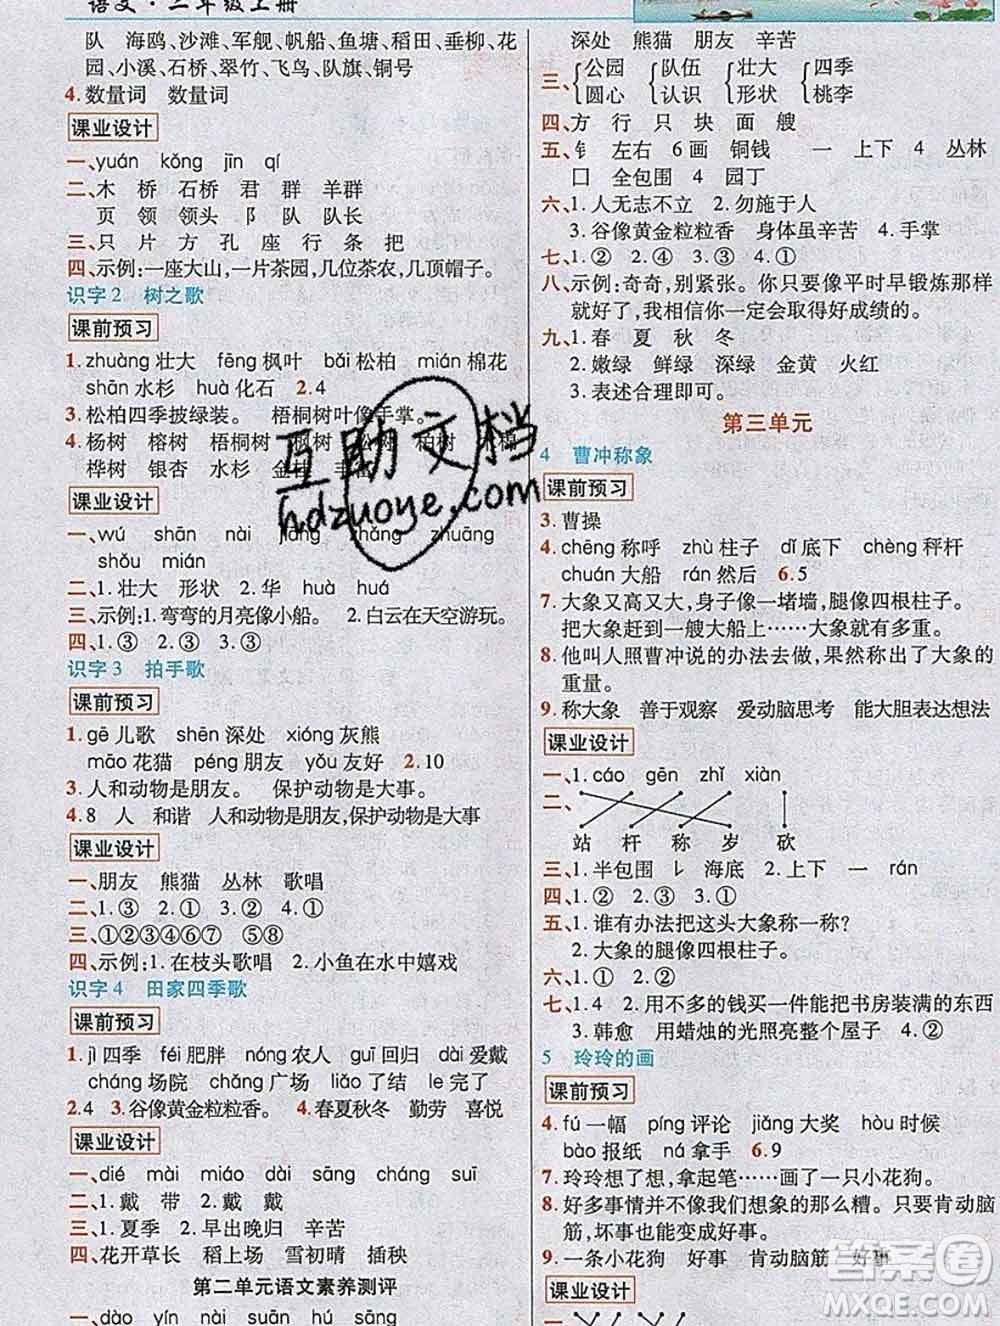 语文·二年级上册
队 海鸥、沙滩、军舰、帆船、鱼塘、稻田、垂柳、花
园、小溪、石桥、翠竹、飞鸟、队旗、铜号
4.数量词 数量词
课业设计
一、yuán kǒng jīn qí
二、木 桥 石桥 君 群 羊群
页 领 领头 阝 队 队长
三、只 片 方 孔 座 行 条 把
四、示例:一座大山,一片茶园,几位茶农,几顶帽子。
识字2 树之歌
课前预习
1.zhuàng壮大 fēng枫叶 bǎi松柏 mián棉花
shān水杉 huà化石 2.4
3.松柏四季披绿装。 梧桐树叶像手掌。
4.杨树 榕树 梧桐树 枫树 松树 柏树
桦树 银杏 水杉 金桂
课业设计
一、wú shān nài jiāng zhǎng zhuāng
shǒu mián
二、1.壮大 形状 2.华 huà huá
三、示例:1.弯弯的月亮像小船。 2.白云在天空游玩。
四、1.③ 2.③ 3.①
识字3 拍手歌
课前预习
1.gē儿歌 shēn深处 xióng灰熊
māo花猫 péng朋友 yǒu友好 2.10
3.人和动物是朋友。 保护动物是大事。
4.8 人 和谐 人和动物是朋友,保护动物是大事
课业设计
一、朋友 熊猫 丛林 歌唱
二、1.③ 2.① 3.② 4.①
三、①②③④⑥⑦ ⑤⑧
四、示例:1.在枝头歌唱 2.小鱼在水中嬉戏
识字4 田家四季歌
课前预习
1.jì四季 féi肥胖 nóng农人 guī回归 dài爱戴
cháng场院 chǎng广场 liǎo了结 le完了
2.4 3.谷像黄金粒粒香。 4.春夏秋冬 勤劳 喜悦
课业设计
一、dié mài miáo dài sāng cháng suī
二、1.戴 带 2.戴 戴
三、1.夏季 2.早出晚归 辛苦
四、花开草长 稻上场 雪初晴 插秧
第二单元语文素养测评
一、dào yín nài suān hú shāng
深处 熊猫 朋友 辛苦
三、{公园 圆心 {队伍 认识 {壮大 形状 {四季 桃李
四、方 行 只 块 面 艘
五、钅 左右 6画 铜钱 一 上下 4 丛林
囗 全包围 4 园丁
六、1.人无志不立 2.勿施于人
3.谷像黄金粒粒香 身体虽辛苦 4.手掌
七、1.② 2.④ 3.③ 4.①
八、示例:奇奇,别紧张。你只要像平时早锻炼那样
就好了,我相信你一定会取得好成绩的。
九、1.春 夏 秋 冬
2.嫩绿 鲜绿 深绿 金黄 火红
3.表述合理即可。
第三单元
4 曹冲称象
课前预习
3.曹操
4.chēng称呼 zhù柱子 dǐ底下 chèng秤杆
chuán大船 rán然后 6.5
7.大象又高又大,身子像一堵墙,腿像四根柱子。
把大象赶到一艘大船上……大象就有多重。
8.他叫人照曹冲说的办法去做,果然称出了大象的
重量。
9.称大象 善于观察 爱动脑思考 能大胆表达想法
课业设计
一、1.cáo gēn zhǐ xiàn
二、
站 杆 称 岁 砍
三、1.半包围 ㇙ 海底 2.上下 一 rán
四、1.①② 2.③ 3.①
五、1.谁有办法把这头大象称一称?
2.大象的腿像四根柱子。
六、1.① 2.②
七、1.4 2.用不多的钱买一件能把书房装满的东西
3.韩愈 用蜡烛的光照亮整个屋子 4.②
5 玲玲的画
课前预习
4.fú一幅 píng评论 jiǎng大奖 hòu时候
bào报纸 ná拿手 6.9
7.玲玲想了想,拿起笔……画了一只小花狗。
8.好多事情并不像我们想象的那么糟。只要肯动脑
筋,坏事也能变成好事。
9.一条小花狗 好事 肯动脑筋 好事
课业设计
互助文档
hdzuoye.com
答案圈
MXQE.COM